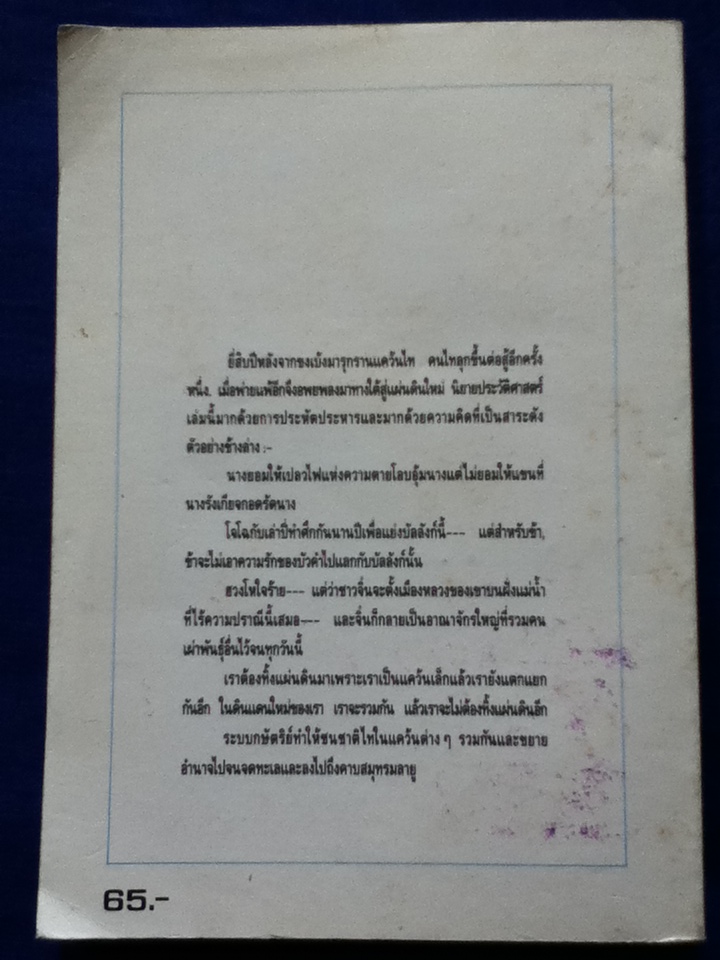 ยี่สิบปีหลังจากขงเบ้งมารุกรานแคว้นไท คนไทลุกขึ้นต่อสู้อีกครั้ง
หนึ่ง. เมื่อพ่ายแพ้อีกจึงอพยพลงมาทางใต้สู่แผ่นดินใหม่ นิยายประวัติศาสตร์
เล่มนี้มากด้วยการประหัตประหารและมากด้วยความคิดที่เป็นสาระดัง
ตัวอย่างข้างล่าง :-
นางยอมให้เปลวไฟแห่งความตายโอบอุ้มนางแต่ไม่ยอมให้แขนที่
นางรังเกียจกอดรัดนาง
โจโฉกับเล่าปี่ทำศึกกันนานปีเพื่อแย่งบัลลังก์นี้--- แต่สำหรับข้า,
ข้าจะไม่เอาความรักของบัวคำไปแลกกับบัลลังก์นั้น
ฮวงโหใจร้าย--- แต่ว่าชาวจิ๋นจะตั้งเมืองหลวงของเขาบนฝั่งแม่น้ำ
ที่ไร้ความปราณีนี้เสมอ--- และจิ๋นก็กลายเป็นอาณาจักรใหญ่ที่รวมคน
เผ่าพันธุ์อื่นไว้จนทุกวันนี้
เราต้องทิ้งแผ่นดินมาเพราะเราเป็นแคว้นเล็กแล้วเรายังแตกแยก
กันอีก ในดินแดนใหม่ของเรา เราจะรวมกัน แล้วเราจะไม่ต้องทิ้งแผ่นดินอีก
ระบบกษัตริย์ทำให้ชนชาติไทในแคว้นต่าง ๆ รวมกันและขยาย
อำนาจไปจนจดทะเลและลงไปถึงคาบสมุทรมลายู
65.-